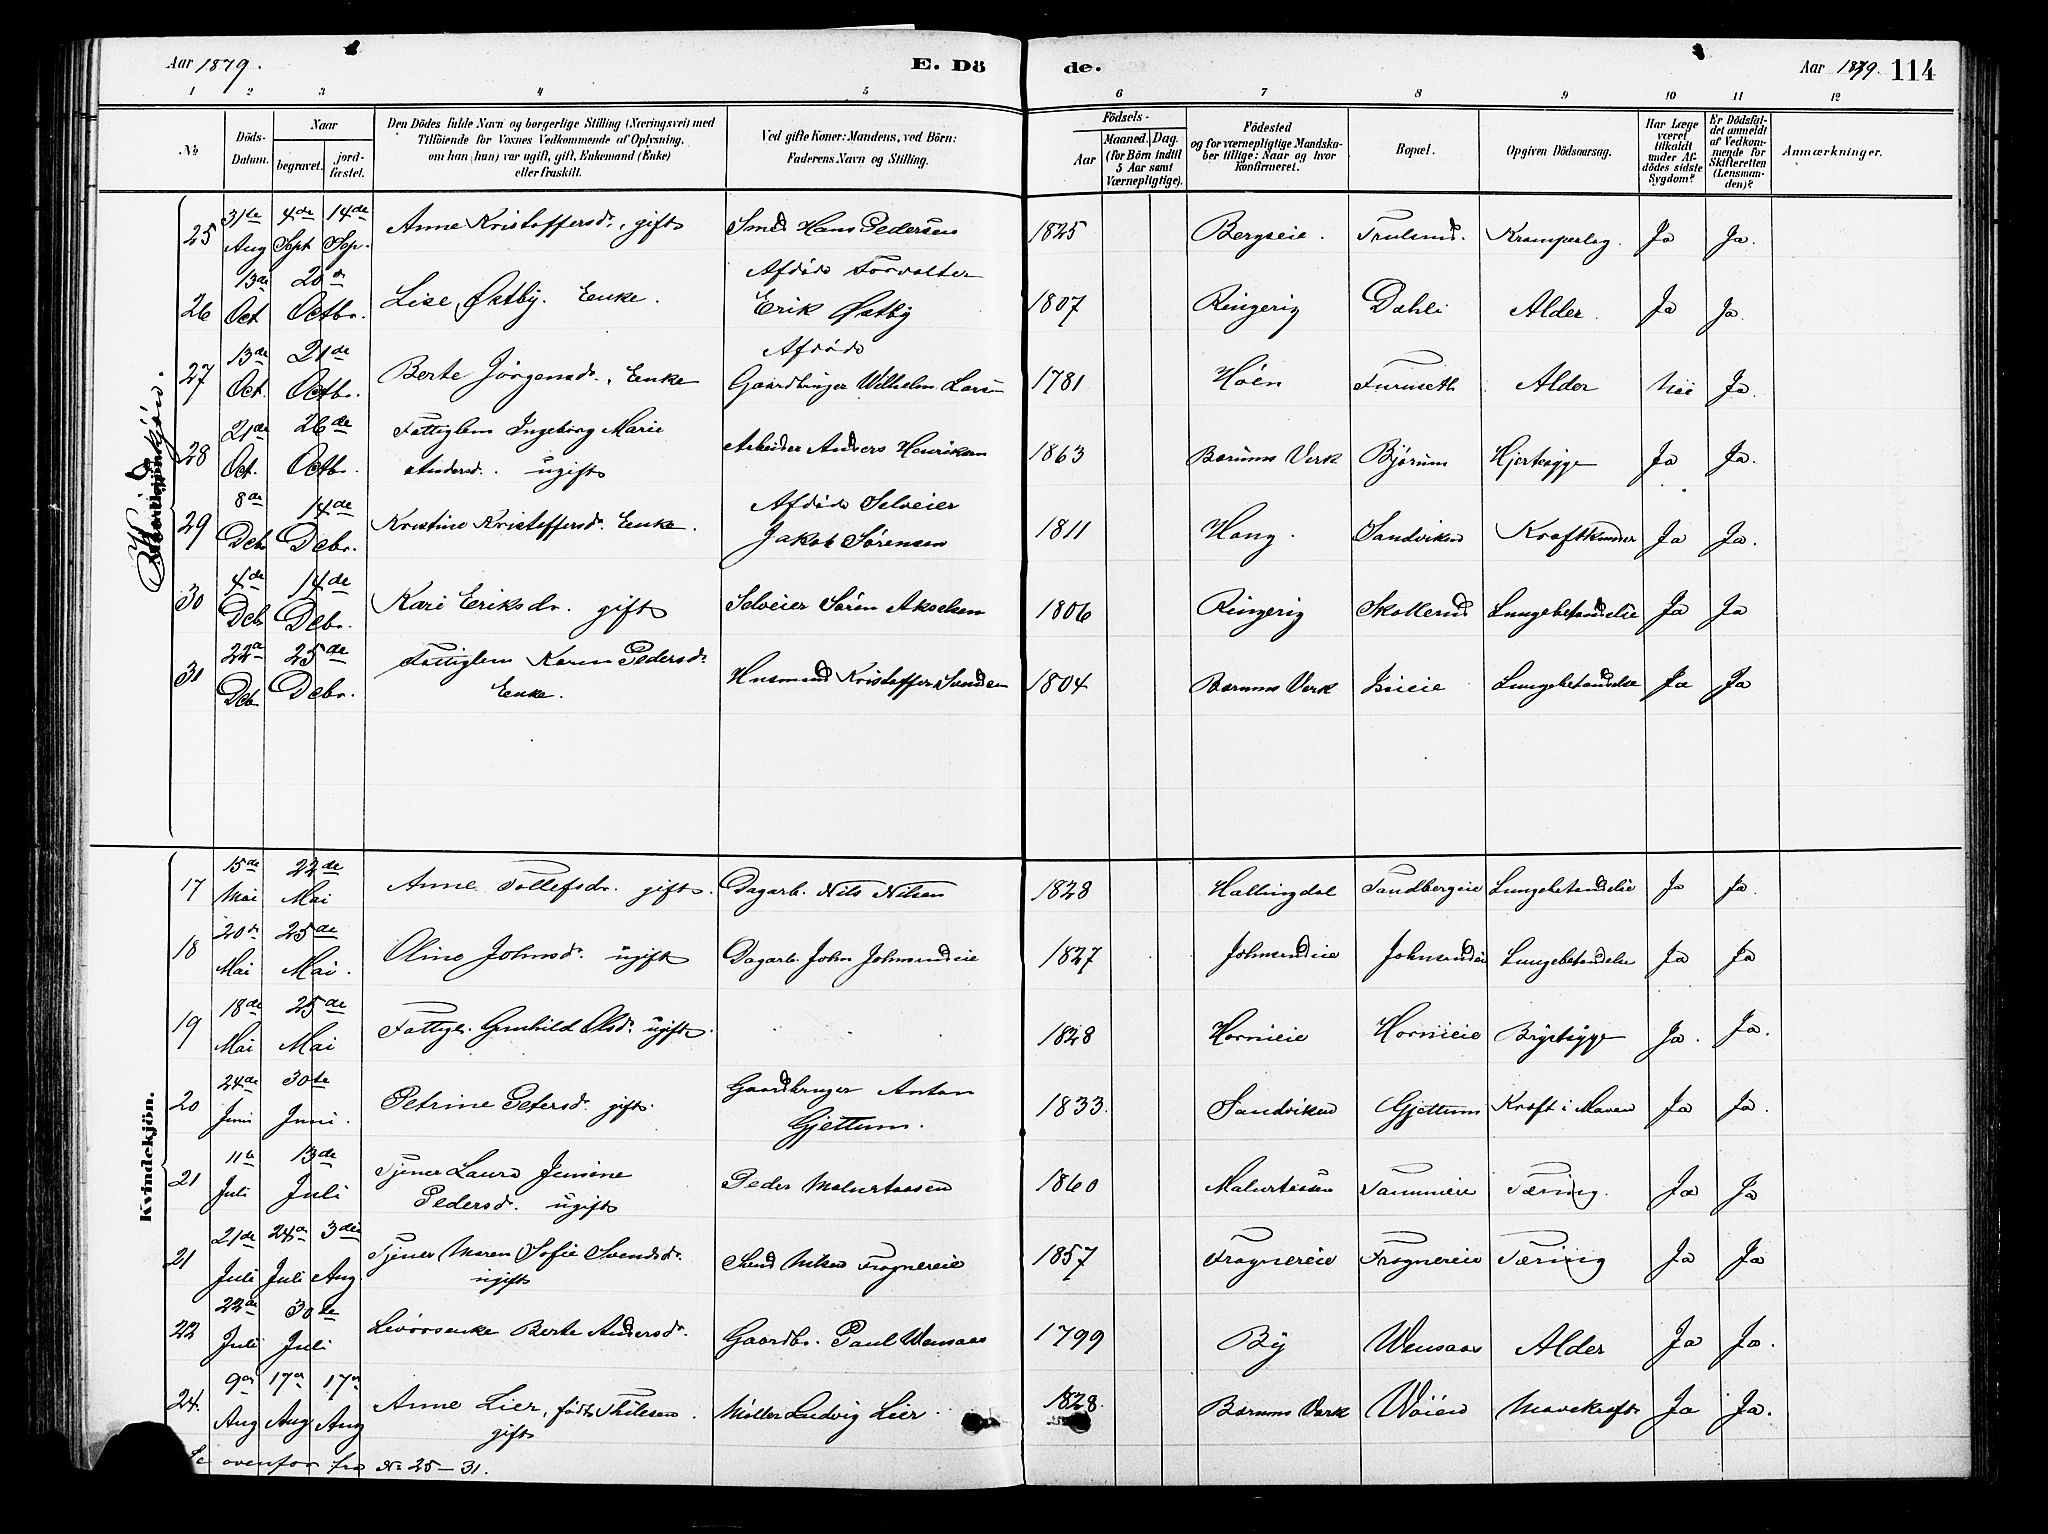 Aar 1879. E. Dö de. Aar 1879. 114
1 2 3 4 5 6 7 8 9 10 11 12
No
Döds-Datum.
Naar
begravet.
jord-fæstet.
Den Dödes fulde Navn og borgerlige Stilling (Næringsvei) med
Tilföiende for Voxnes Vedkommende af Oplysning,
om han (hun) var ugift, gift, Enkemand (Enke)
eller fraskilt.
Ved gifte Koner: Mandens, ved Börn:
Faderens Navn og Stilling.
Födsels-
Aar
Maaned. Dag.
(for Börn indtil
5 Aar samt
Værnepligtige).
Födested
og for værnepligtige Mandska-
ber tillige: Naar og hvor
konfirmeret.
Bopæl.
Opgiven Dödsaarsag.
Har Læge
været
tilkaldt
under Af-
dödes sidste
Sygdom?
Er Dödsfal-
det anmeldt
af Vedkom-
mende for
Skifteretten
(Lensman-
den)?
Anmærkninger.
25 31te Aug 4de Sept 14de Sep. Anne Kristoffersdr., gift Smed Hans Pedersen 1825 Bergseie. Trulsrud. Krampeslag. Ja Ja.
26 13de Oct 20de Octbr. Lise Østby. Enke. Afdøde Forvalter
Erik Østby 1807 Ringerig Dahli Alder. Ja Ja.
27 13de Oct. 21de Octbr. Berte Jørgensdr., Enke Afdøde
Gaardbruger Wilhelm Larsen 1781 Høen Furuseth Alder Nei Ja.
28 21de Oct. 26de Octbr. Fattiglem Ingeborg Marie
Andersd. ugift Arbeider Anders Henriksen 1863 Bærums Verk Bjørum Hjertesyge Ja Ja.
29 8de Debr 14de Debr. Kristine Kristoffersdr. Enke. Afdøde Selveier
Jakob Sørensen 1811 Haug. Sandviken Kræftskader Ja Ja.
30 4de Debr 14de Debr. Kari Eriksdr. gift Selveier Søren Akselsen 1806 Ringerig Skollerud Lungebetændelse Ja Ja
31 22de Deb 25de Debr. Fattiglem Karen Pedersdr.
Enke. Husmand Kristoffer Svendsen 1804 Bærums Verk Isieie Lungebetændelse Ja Ja
Kvindekjön.
17 15de Mai 22de Mai Anne Tollefsdr. gift. Dagarb. Nils Nilsen 1828 Hallingdal Tandbergeie Lungebetændelse Ja Ja.
18 20de Mai 25de Mai. Oline Johnsdr. ugift Dagarb. John Johnsrudeie 1827 Johnsrudeie Johnsrudeie Lungebetændelse Ja Ja
19 18de Mai 25de Mai Fattigl. Gunhild Olsdr. ugift. 1828 Hornieie Hornieie Brystsyge Ja. Ja.
20 24de Juni 30te Juni. Petrine Petersd. gift. Gaardbruger Anton
Gjettum. 1833. Sandviken Gjettum Kræft i Maven Ja Ja.
21 11te Juli 13de Juli Tjener Laura Jensine
Pedersd. ugift Peder Malurtaasen 1860 Malurtaasen Tanumeie Tæring. Ja Ja
21 21de Juli 24de Juli 3die Aug Tjener Maren Sofie Svendsdr.
ugift Svend Nilsen Frognereie 1857 Frognereie Frognereie Tæring Ja Ja
22 22de Juli 30te Juli Berte Andersdr. Gaardbr. Paul Wensaas 1799 By Wensaas Alder Ja Ja.
24. 9de Aug 17de Aug 17de Aug Anne Lier, født Thilesen
gift Møller Ludvig Lier. 1828. Bærums Verk Wøien Mavekræft Ja Ja.
Se ovenfor fra No 25–31.